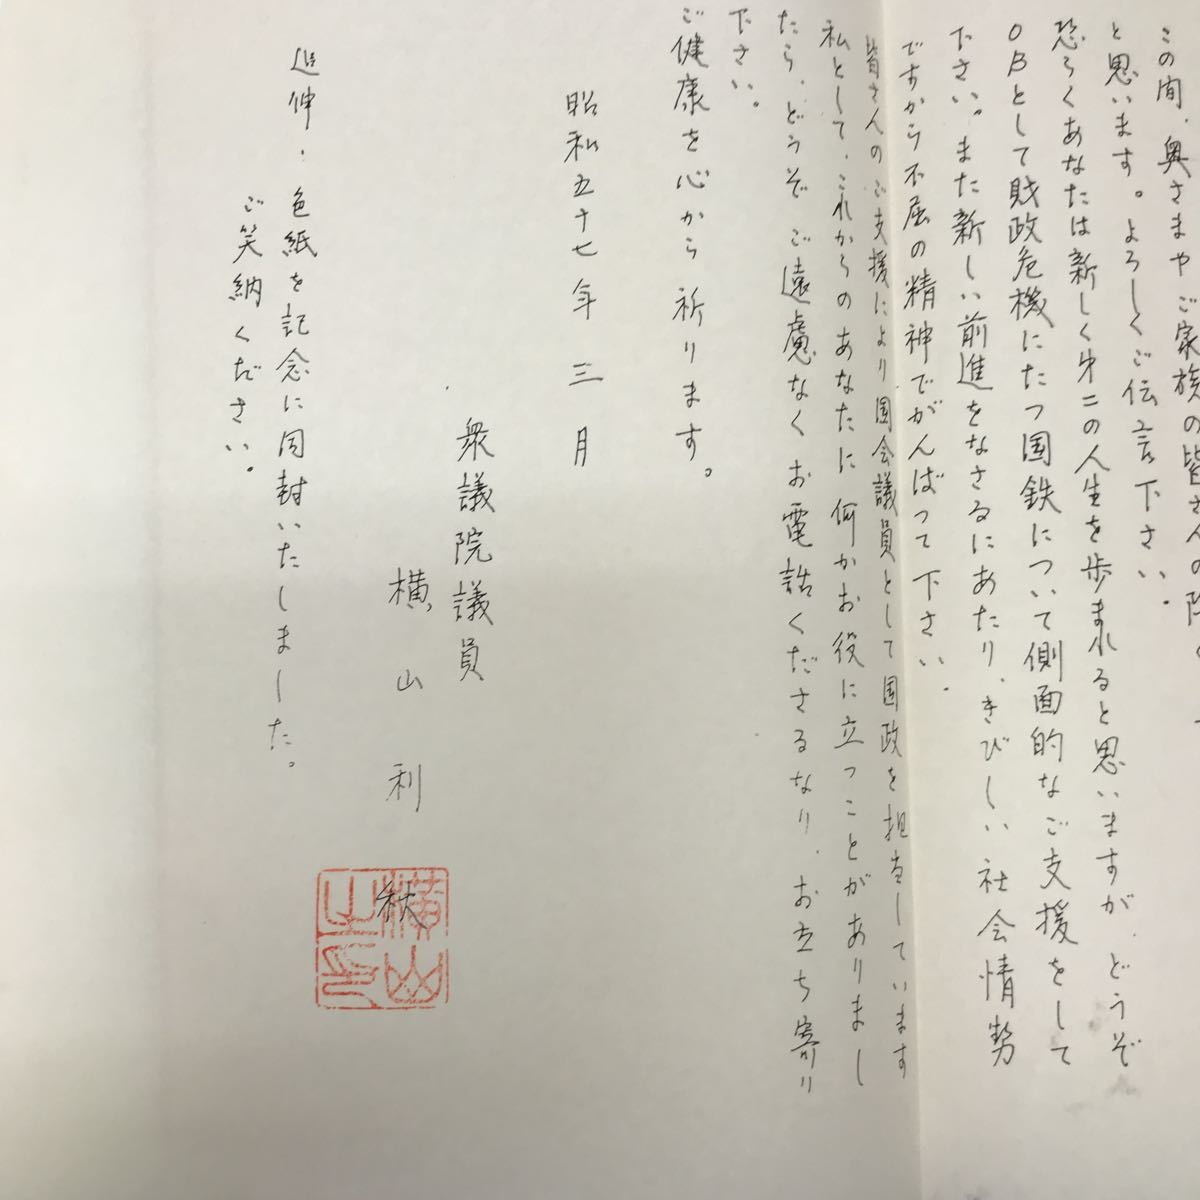 この間、奥さまやご家族の皆さんの
と思います。よろしくご伝言下さい。
恐らくあなたは新しく才二の人生を歩まれると思いますが、どうぞ
OBとして財政危機にたつ国鉄について側面的なご支援をして
下さい。また新しい前進をなさるにあたり、きびしい社会情勢
ですから不屈の精神でがんばって下さい。
皆さんのご支援により国会議員として国政を担当しています
私として、これからのあなたに何かお役に立つことがありまし
たら、どうぞご遠慮なくお電話くださるなり、お立ち寄り
下さい。
ご健康を心から祈ります。
昭和五十七年三月
衆議院議員
横山利秋
追伸・色紙を記念に同封いたしました。
ご笑納ください。
横山之印